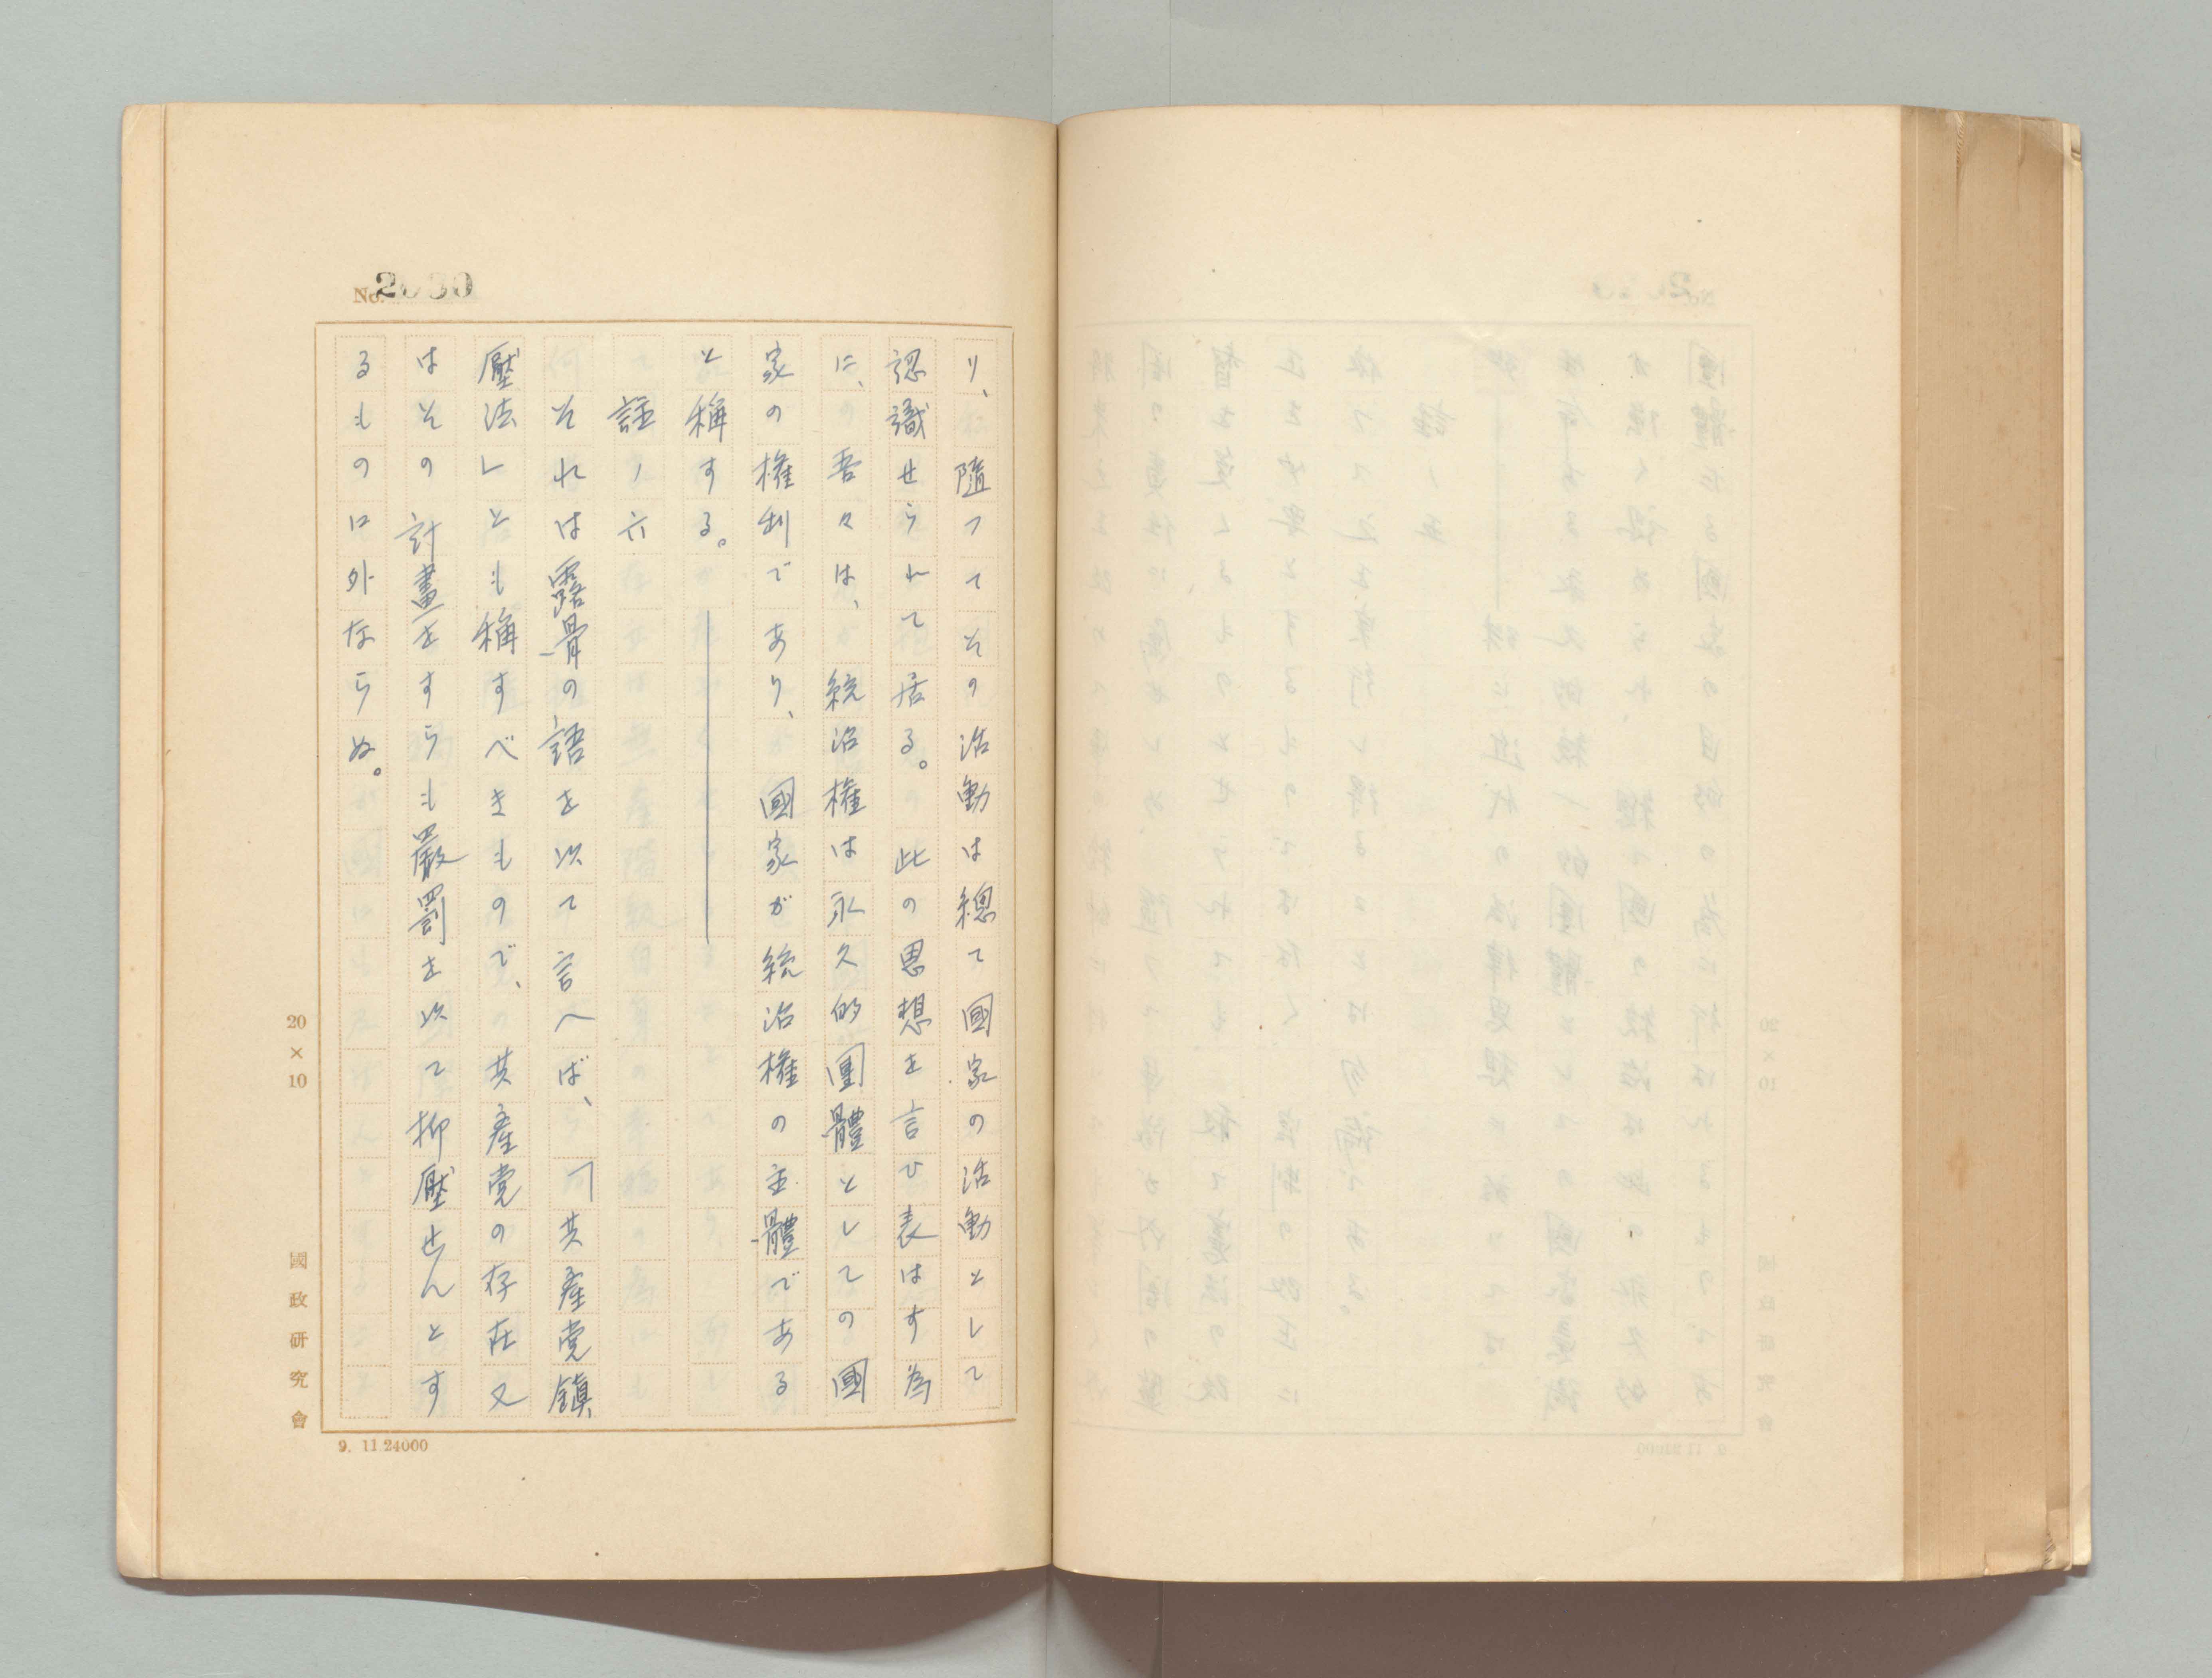 No. 2030
り、隨つてその活動は總て國家の活動として
認識せられて居る。此の思想を言ひ表はす為
に、吾々は、統治權は永久的團體としての國
家の權利であり、國家が統治權の主體である
と稱する。
註ノ六
それは露骨の語を以て言へば、「共產党鎮
壓法」とも稱すべきもので、共產党の存在又
はその計畫をすらも嚴罰を以て抑壓せんとす
るものに外ならぬ。
20×10
國政研究會
9. 11.24000